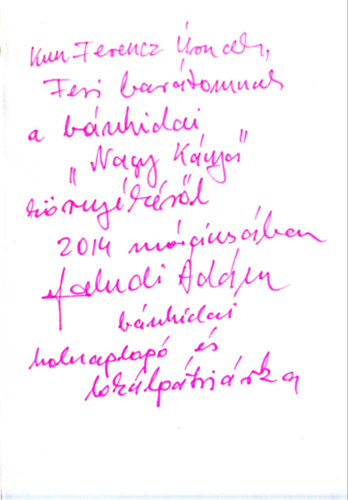 Kun Ferenc Úrnak,
Feri barátomnak
a bánhidai
„Nagy Kánya"
környékéről
2014 márciusában
Faludi Ádám
bánhidai
holnaplapó és
lokálpátriárka